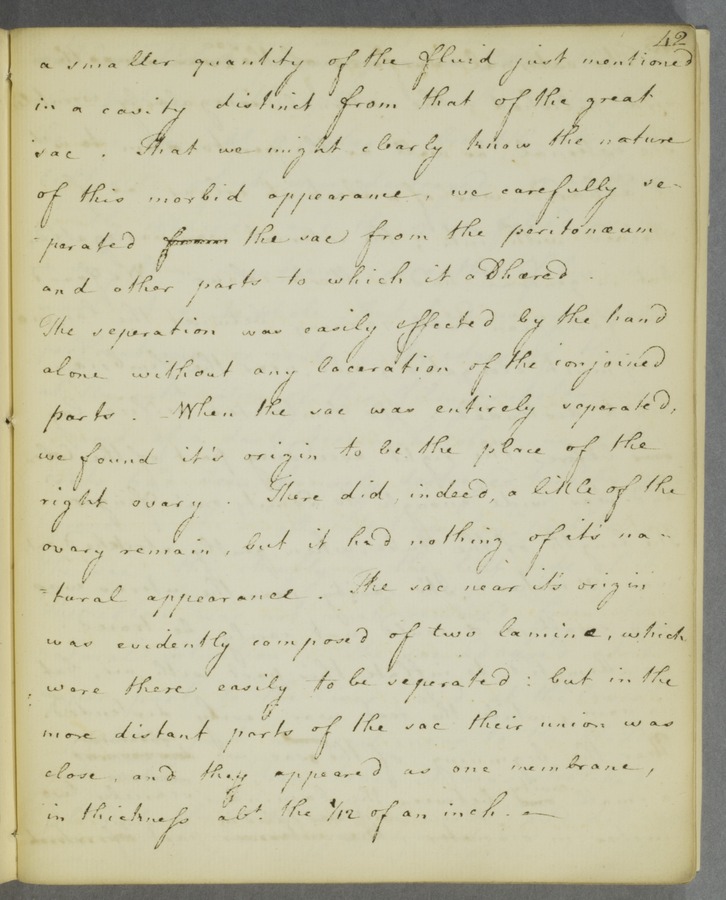 42
a smaller quantity of the fluid just mentioned
in a cavity distinct from that of the great
sac. That we might clearly know the nature
of this morbid appearance, we carefully se-
-perated from the sac from the peritonæum
and other parts to which it adhæred.
The seperation was easily effected by the hand
alone without any laceration of the conjoined
parts. When the sac was entirely seperated,
we found it's origin to be the place of the
right ovary. There did, indeed, a little of the
ovary remain, but it had nothing of it's na-
-tural appearance. The sac near it's origin
was evidently composed of two laminæ, which
were there easily to be seperated: but in the
more distant parts of the sac their union was
close, and they appeared as one membrane,
in thickness abt. the 1/12 of an inch. —